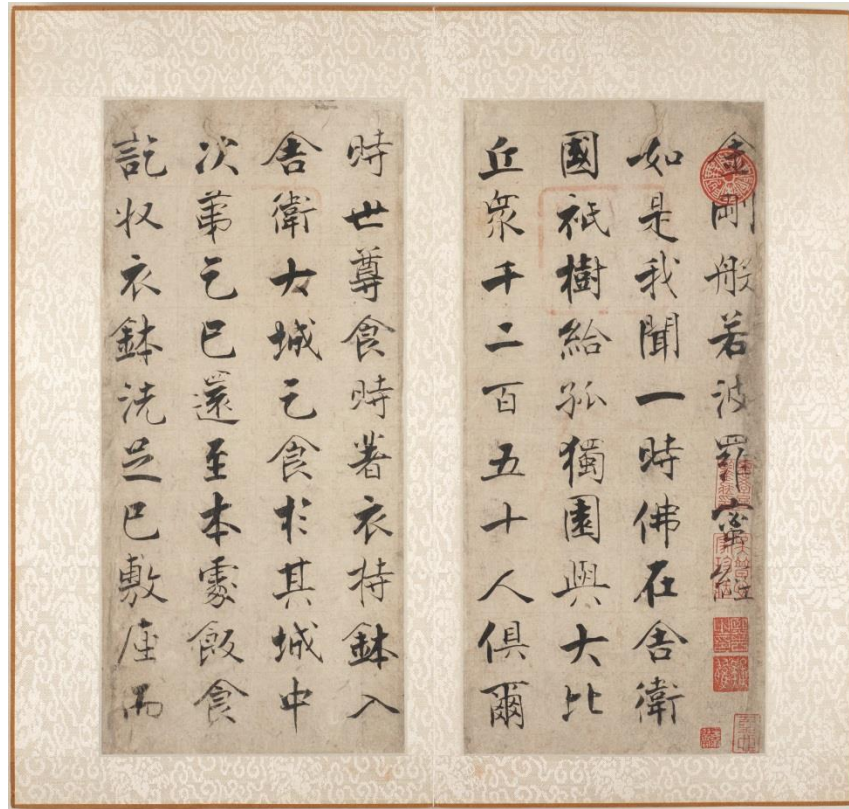 金剛般若波羅蜜經
如是我聞一時佛在舍衛
國祇樹給孤獨園與大比
丘眾千二百五十人俱爾
時世尊食時著衣持鉢入
舍衛大城乞食於其城中
次第乞已還至本處飯食
訖収衣鉢洗足已敷座而